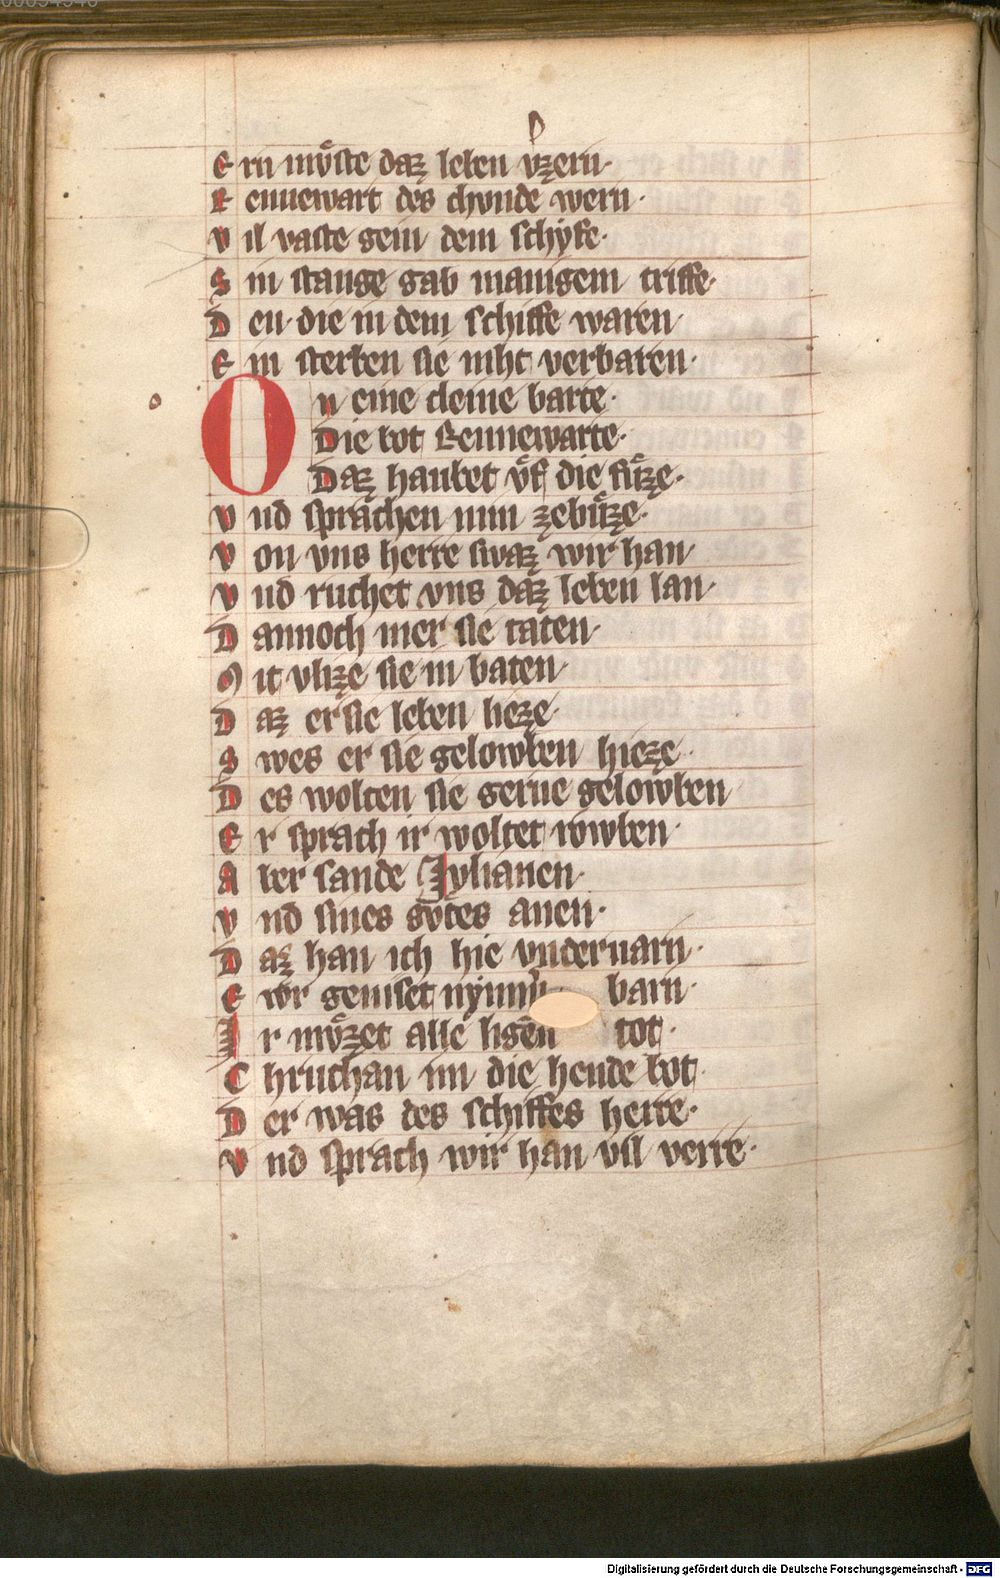 E rn mvͤste daz leben vͦzern·
R ennewart des chvnde wern·
V il vaste gein dem schyffe·
S in stange gab manigem triffe·
D en· die in dem schiffe waren·
E in sterben sie niht verbaren·
O n eine cleine barte·
Die bot Rennewarte·
Daz haubet vͦf die fuͤzze·
V nd sprachen nim zebuͤzze·
V on vns herre swaz wir han·
V nd ruchet vns daz leben lan·
D annoch mer sie taten·
M it vlize sie in baten·
D az er sie leben lieze·
S wes er sie gelowben hieze·
D es wolten sie gerne gelowben·
E r sprach ir woltet rowben·
A ber sande Jylianen·
V nd sines gotes anen·
D az han ich hie vndervarn·
E wr geniset nymmͬ barn·
I r mvͤzet alle ligen tot·
C hruchan im die hende bot·
D er was des schiffes herre·
V nd sprach wir han vil verre·
Digitalisierung gefördert durch die Deutsche Forschungsgemeinschaft - DFG